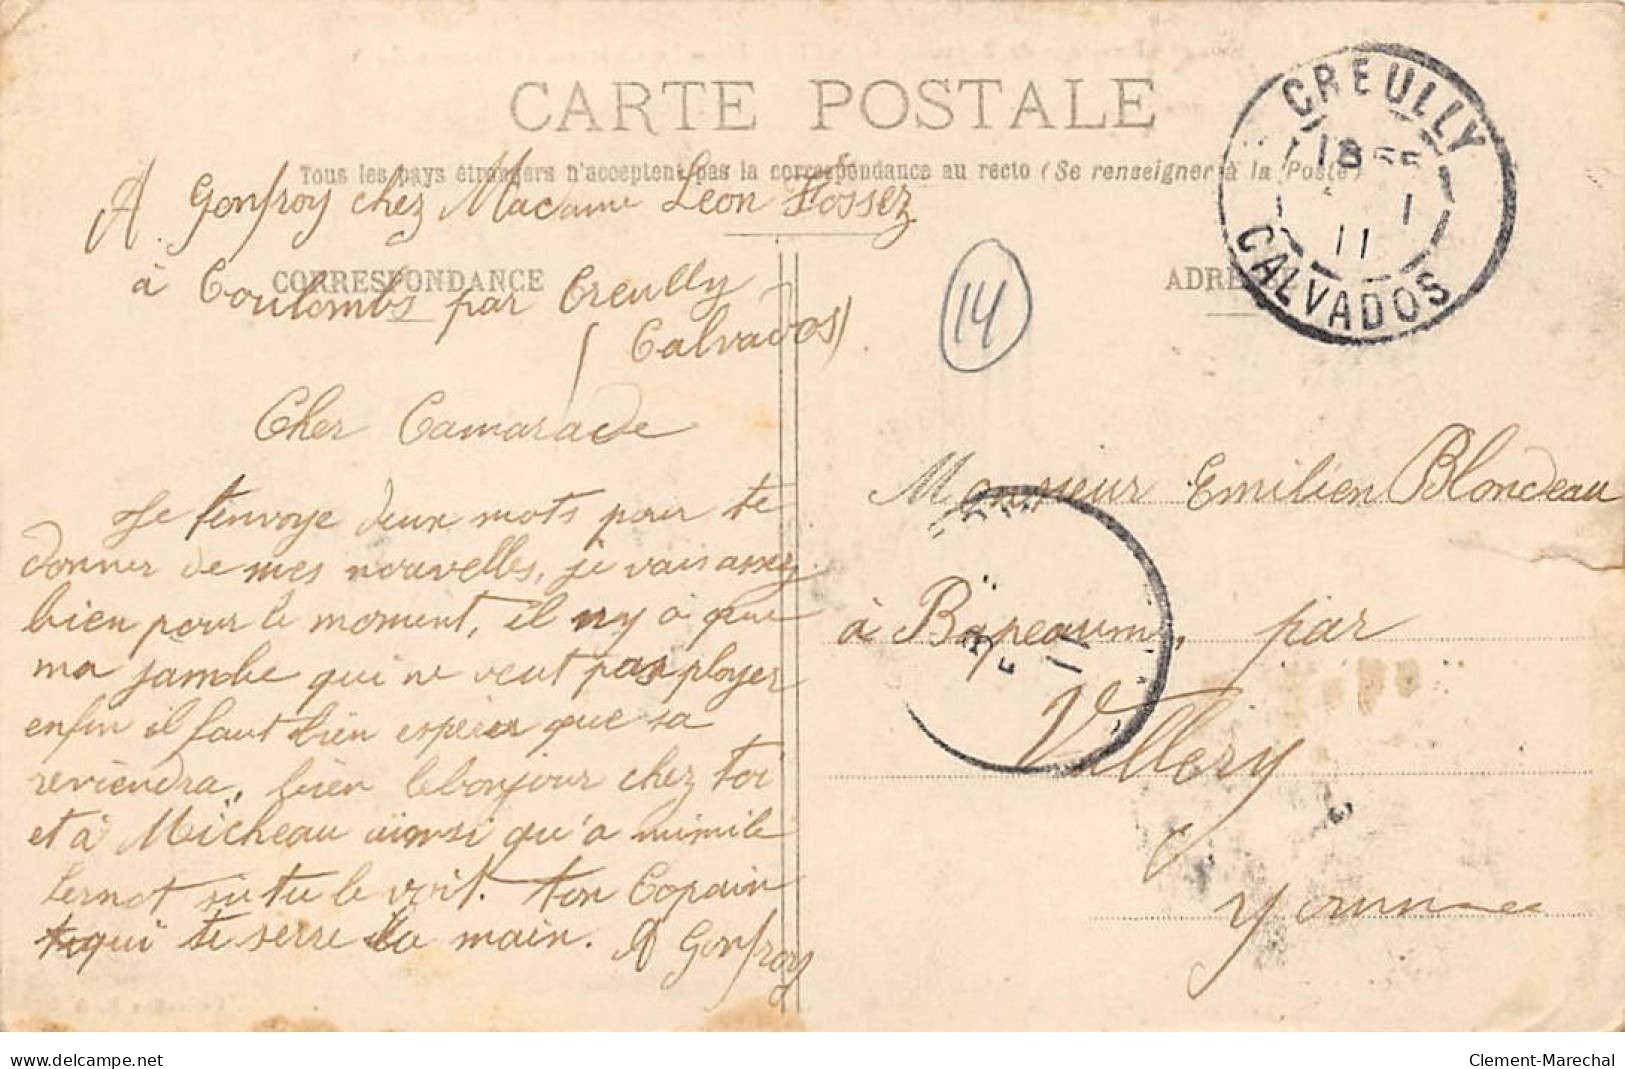 CARTE POSTALE
Tous les pays étrangers n'acceptent pas la correspondance au recto (Se renseigner à la Poste)
A Gonfroy chez Madame Leon Fossez
CORRESPONDANCE
à Coulombs par Creully
(Calvados)
Cher Camarade
Je t'envoye deux mots pour te
donner de mes nouvelles, je vais assez
bien pour le moment, il ny a que
ma jambe qui ne veut pas ployer
enfin il faut bien espérer que sa
reviendra, bien lebonjour chez toi
et à Micheau ainsi qu'a mimile
Lernot si tu le voit. ton Copain
qui te serre la main. A Gonfroy
14
ADRE
CREULLY
18 55
1
11
CALVADOS
Monsieur Emilien Blondeau
à Bapeaume, par
Vallery
Yonne
11
www.delcampe.net
Clement-Marechal